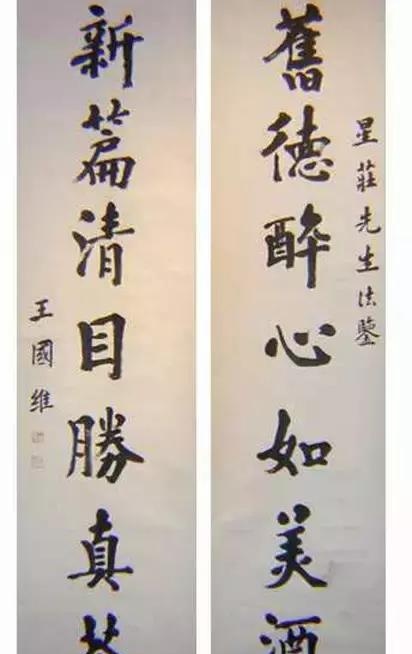 星莊先生法鑒
舊德醉心如美酒
新篇清目勝真
王國維